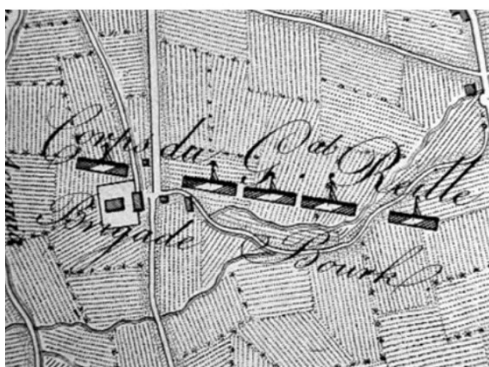 Corps du G.ʳᵃˡ Reille
Brigade Bourk